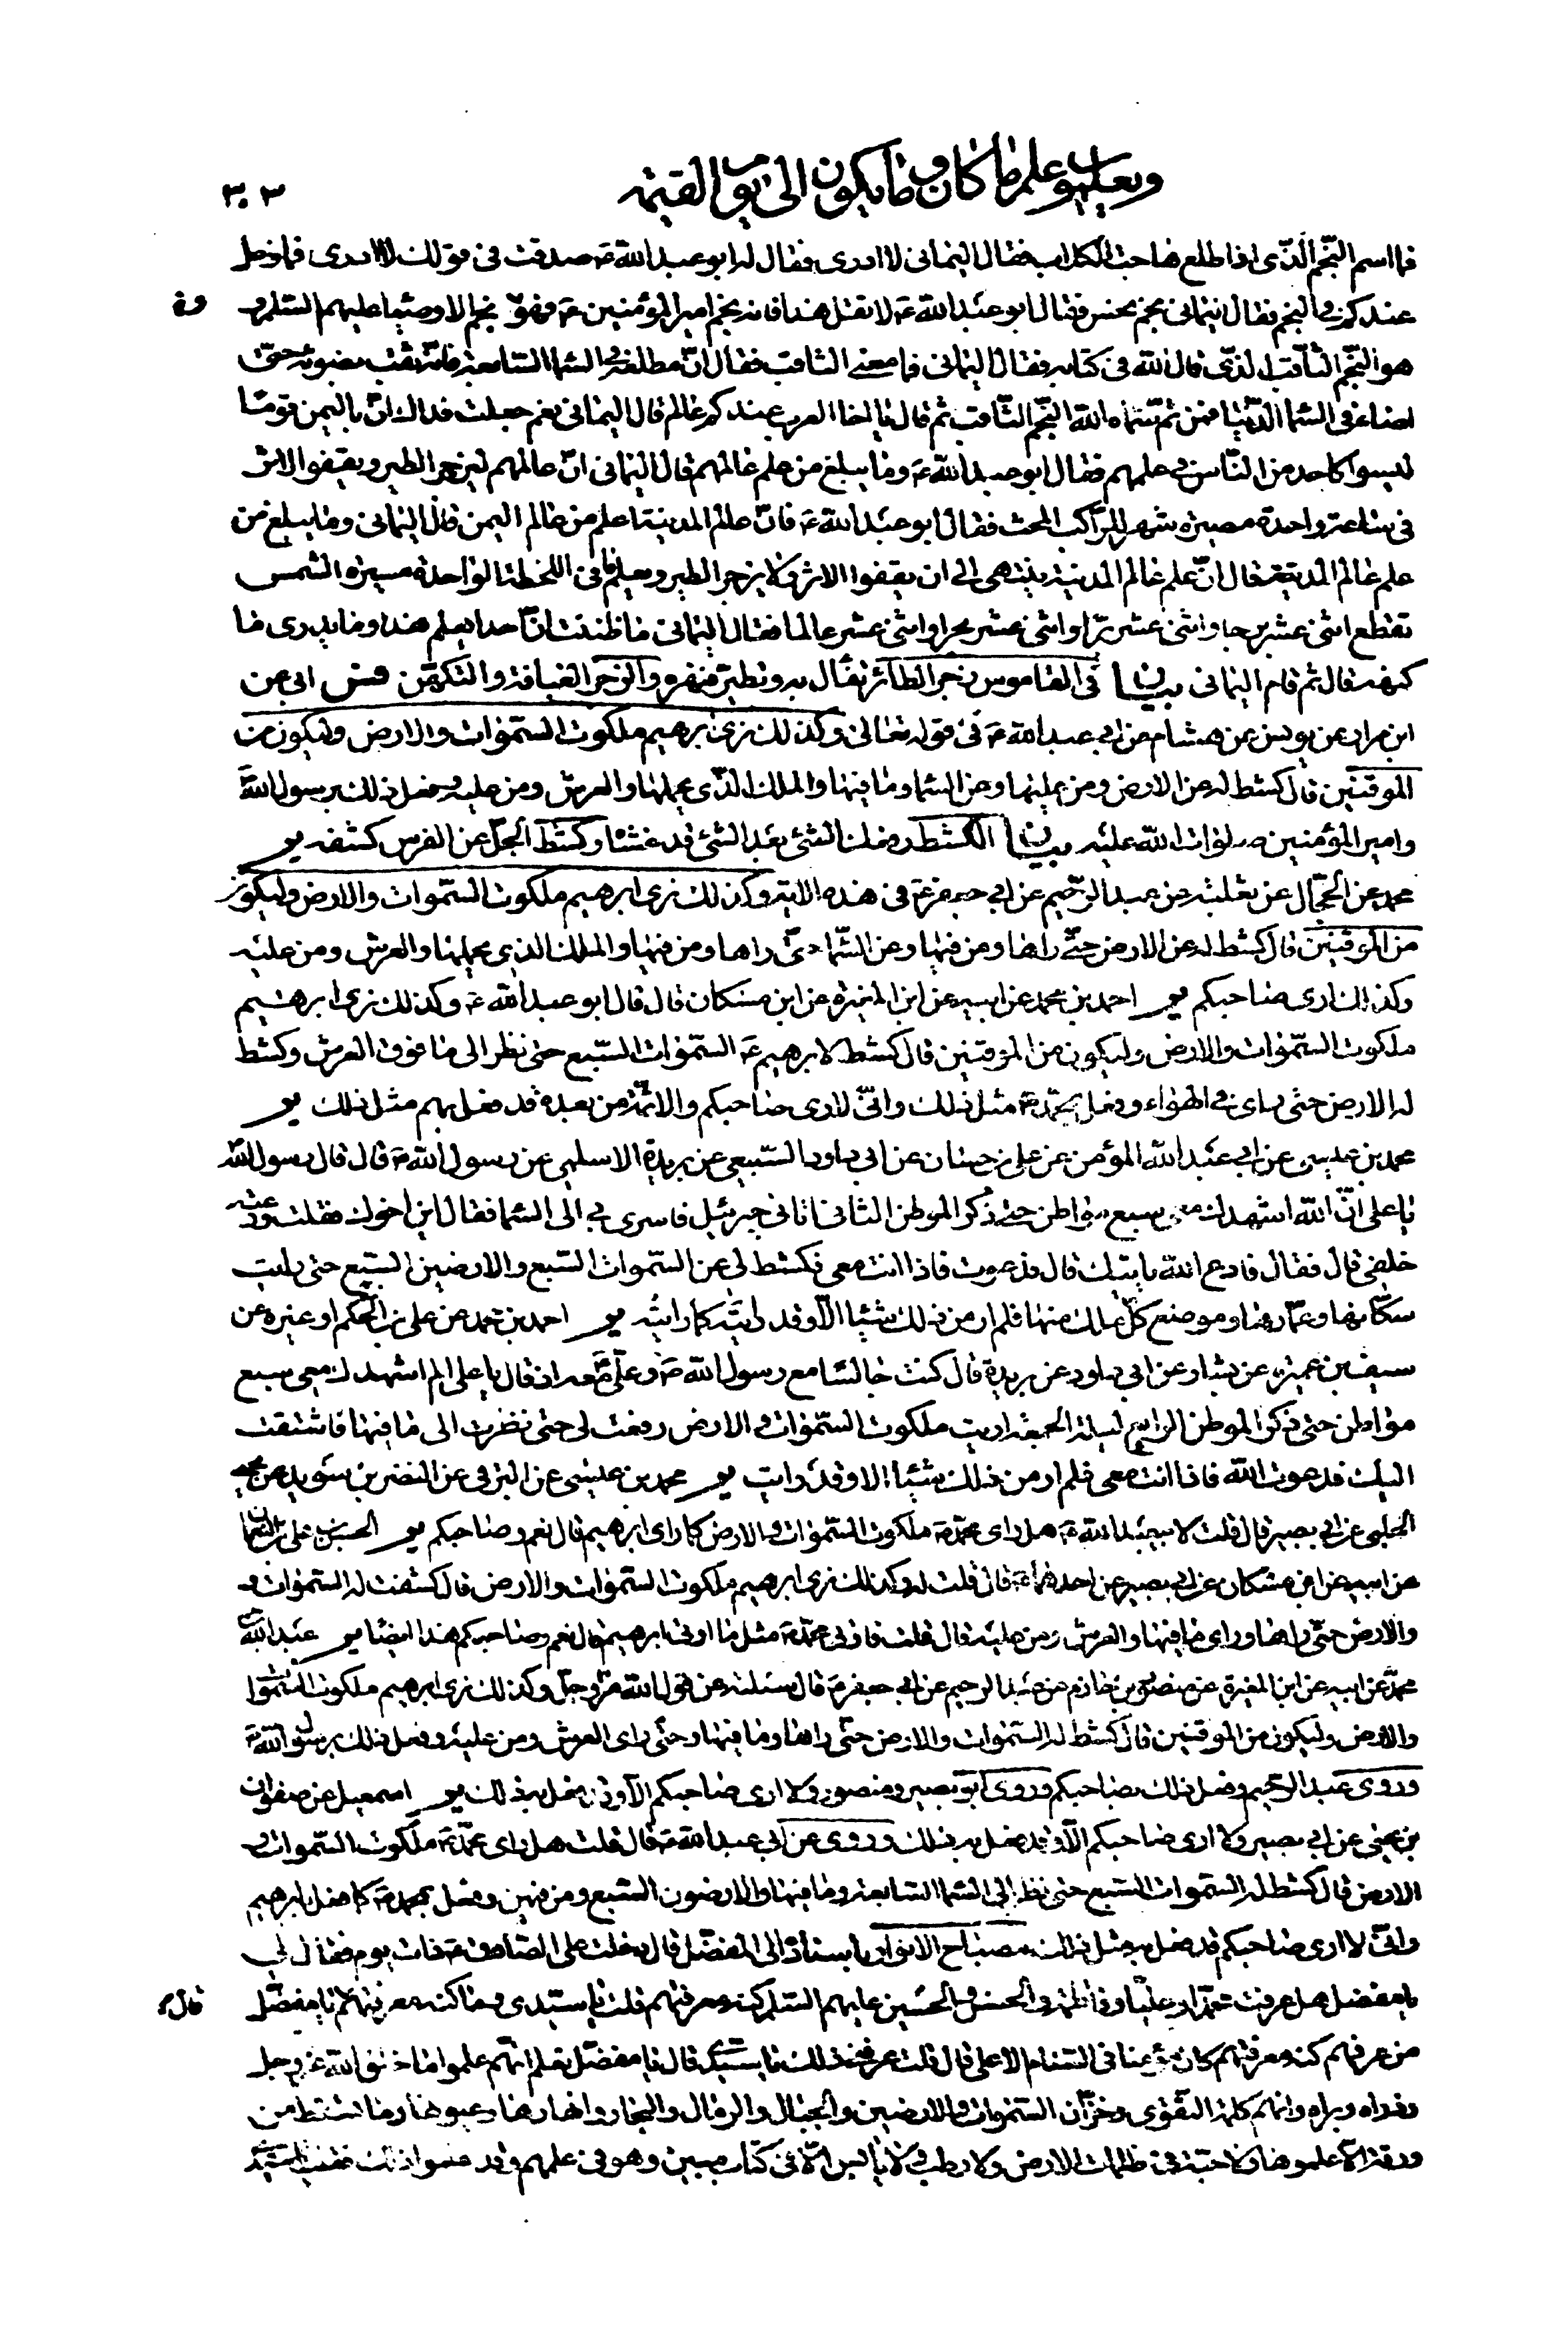 ويعلمون علم ما كان وما يكون الى يوم القيمة
٣٠٣
فما اسم النجم الذى اذا طلع هاجت الكلاب فقال اليمانى لا ادرى فقال له ابو عبد الله ع صدقت فى قولك لا ادرى فما زحل
عندكم فى النجم فقال اليمانى نجم نحس فقال ابو عبد الله ع لا تقل هذا فانه نجم امير المؤمنين ع فهو نجم الاوصياء عليهم السلم و
هو النجم الثاقب الذى قال الله فى كتابه فقال اليمانى فما معنى الثاقب فقال ان مطلعه فى السماء السابعة فانه ثقب بضوئه حتى
اضاء فى السماء الدنيا فمن ثم سماه الله النجم الثاقب ثم قال يا اخا العرب عندكم عالم قال اليمانى نعم جعلت فداك ان باليمن قوما
ليسوا كاحد من الناس فى علمهم فقال ابو عبد الله ع وما يبلغ من علم عالمهم قال اليمانى ان عالمهم ليزجر الطير ويقفوا الاثر
فى ساعة واحدة مسيرة شهر للراكب المحث فقال ابو عبد الله ع فان عالم المدينة اعلم من عالم اليمن قال اليمانى وما يبلغ من
علم عالم المدينة فقال ان علم عالم المدينة ينتهى الى ان يقفوا الاثر ولا يزجر الطير ويعلم ما فى اللحظة الواحدة مسيرة الشمس
تقطع اثنى عشر برجا واثنى عشر برا واثنى عشر بحرا واثنى عشر عالما فقال اليمانى ما ظننت ان احدا يعلم هذا وما يدرى ما
كنهه قال ثم قام اليمانى بيان فى القاموس زجر الطائر تفأل به وتطير فنهره والزجر العيافة والتكهن فس ابى عن
ابن مرار عن يونس عن هشام عن ابى عبد الله ع فى قوله تعالى وكذلك نرى ابرهيم ملكوت السموات والارض وليكون من
الموقنين قال كشط له عن الارض ومن عليها وعن السماء وما فيها والملك الذى يحملها والعرش ومن عليه وفعل ذلك برسول الله
وامير المؤمنين صلوات الله عليه بيان الكشط رفعك الشئ بعد الشئ قد غشاه وكشط الجل عن الفرس كشفه ير
محمد عن الحجال عن ثعلبة عن عبد الرحيم عن ابى جعفر ع فى هذه الاية وكذلك نرى ابرهيم ملكوت السموات والارض وليكون
من الموقنين قال كشط له عن الارض حتى راها ومن فيها وعن السماء حتى راها ومن فيها والملك الذى يحملها والعرش ومن عليه
وكذلك ارى صاحبكم ير احمد بن محمد عن ابيه عن ابن المغيرة عن ابن مسكان قال قال ابو عبد الله ع وكذلك نرى ابرهيم
ملكوت السموات والارض وليكون من الموقنين قال كشط لابرهيم ع السموات السبع حتى نظر الى ما فوق العرش وكشط
له الارض حتى راى ما فى الهواء وفعل بمحمد ص مثل ذلك وانى لارى صاحبكم والائمة من بعده قد فعل بهم مثل ذلك ير
محمد بن عيسى عن ابى عبد الله المؤمن عن على بن حسان عن ابى داود السبيعى عن بريدة الاسلمى عن رسول الله ص قال قال رسول الله
يا على ان الله اشهدك معى سبع مواطن حتى ذكر الموطن الثانى اتانى جبرئيل فاسرى بى الى السماء فقال اين اخوك فقلت ودعته
خلفى قال فقال فادع الله ياتيك به قال فدعوت فاذا انت معى فكشط لى عن السموات السبع والارضين السبع حتى رايت
سكانها وعمارها وموضع كل ملك منها فلم ار من ذلك شيئا الا وقد رايته كما رايته ير احمد بن محمد عن على بن الحكم او غيره عن
سيف بن عميرة عن بشار عن ابى داود عن بريدة قال كنت جالسا مع رسول الله ص وعلى ع معه اذ قال يا على الم اشهدك معى سبع
مواطن حتى ذكر الموطن الرابع ليلة الجمعة اريت ملكوت السموات والارض رفعت لى حتى نظرت الى ما فيها فاشتقت
اليك فدعوت الله فاذا انت معى فلم ار من ذلك شيئا الا وقد رايت ير محمد بن عيسى عن البرقى عن النضر بن سويد عن يحيى
الحلبى عن ابى بصير قال قلت لابى عبد الله ع هل راى محمد ص ملكوت السموات والارض كما راى ابرهيم قال نعم وصاحبكم ير الحسن بن على بن النعمان
عن ابيه عن ابن مسكان عن ابى بصير عن احدهما ع قال قلت له وكذلك نرى ابرهيم ملكوت السموات والارض قال كشفت له السموات و
والارض حتى راها وراى ما فيها والعرش ومن عليه قال قلت فاوتى محمد ص مثل ما اوتى ابرهيم قال نعم وصاحبكم هذا ايضا ير عبد الله بن
محمد عن ابيه عن ابن المغيرة عن منصور بن حازم عن عبد الرحيم عن ابى جعفر ع قال سئلته عن قول الله عز وجل وكذلك نرى ابرهيم ملكوت السموات
والارض وليكون من الموقنين قال كشط له السموات والارض حتى راها وما فيها وحتى راى العرش ومن عليه وفعل ذلك برسول الله ص
وروى عبد الرحيم وفعل ذلك بصاحبكم وروى ابو بصير ومنصور ولا ارى صاحبكم الا وقد فعل به ذلك ير اسمعيل عن صفوان
بن يحيى عن ابى بصير ولا ارى صاحبكم الا وقد فعل به ذلك وروى عن ابى عبد الله ع قال قلت هل راى محمد ص ملكوت السموات و
الارض قال كشط له السموات السبع حتى نظر الى السماء السابعة وما فيها والارضون السبع ومن فيهن وفعل بمحمد ص كما فعل بابرهيم
وانى لا ارى صاحبكم قد فعل به مثل ذلك مصباح الانوار باسناده الى المفضل قال دخلت على الصادق ع ذات يوم فقال لى
يا مفضل هل عرفت محمدا وعليا وفاطمة والحسن والحسين عليهم السلم كنه معرفتهم قلت يا سيدى وما كنه معرفتهم قال يا مفضل
قال م
من عرفهم كنه معرفتهم كان مؤمنا فى السنام الاعلى قال قلت عرفنى ذلك يا سيدى قال يا مفضل تعلم انهم علموا ما خلق الله عز وجل
وذراه وبراه وانهم كلمة التقوى وخزان السموات والارضين والجبال والرمال والبحار وانهارها وعيونها وما تسقط من
ورقة الا علموها ولا حبة فى ظلمات الارض ولا رطب ولا يابس الا فى كتاب مبين وهو فى علمهم وقد علموا ذلك فقلت يا سيدى